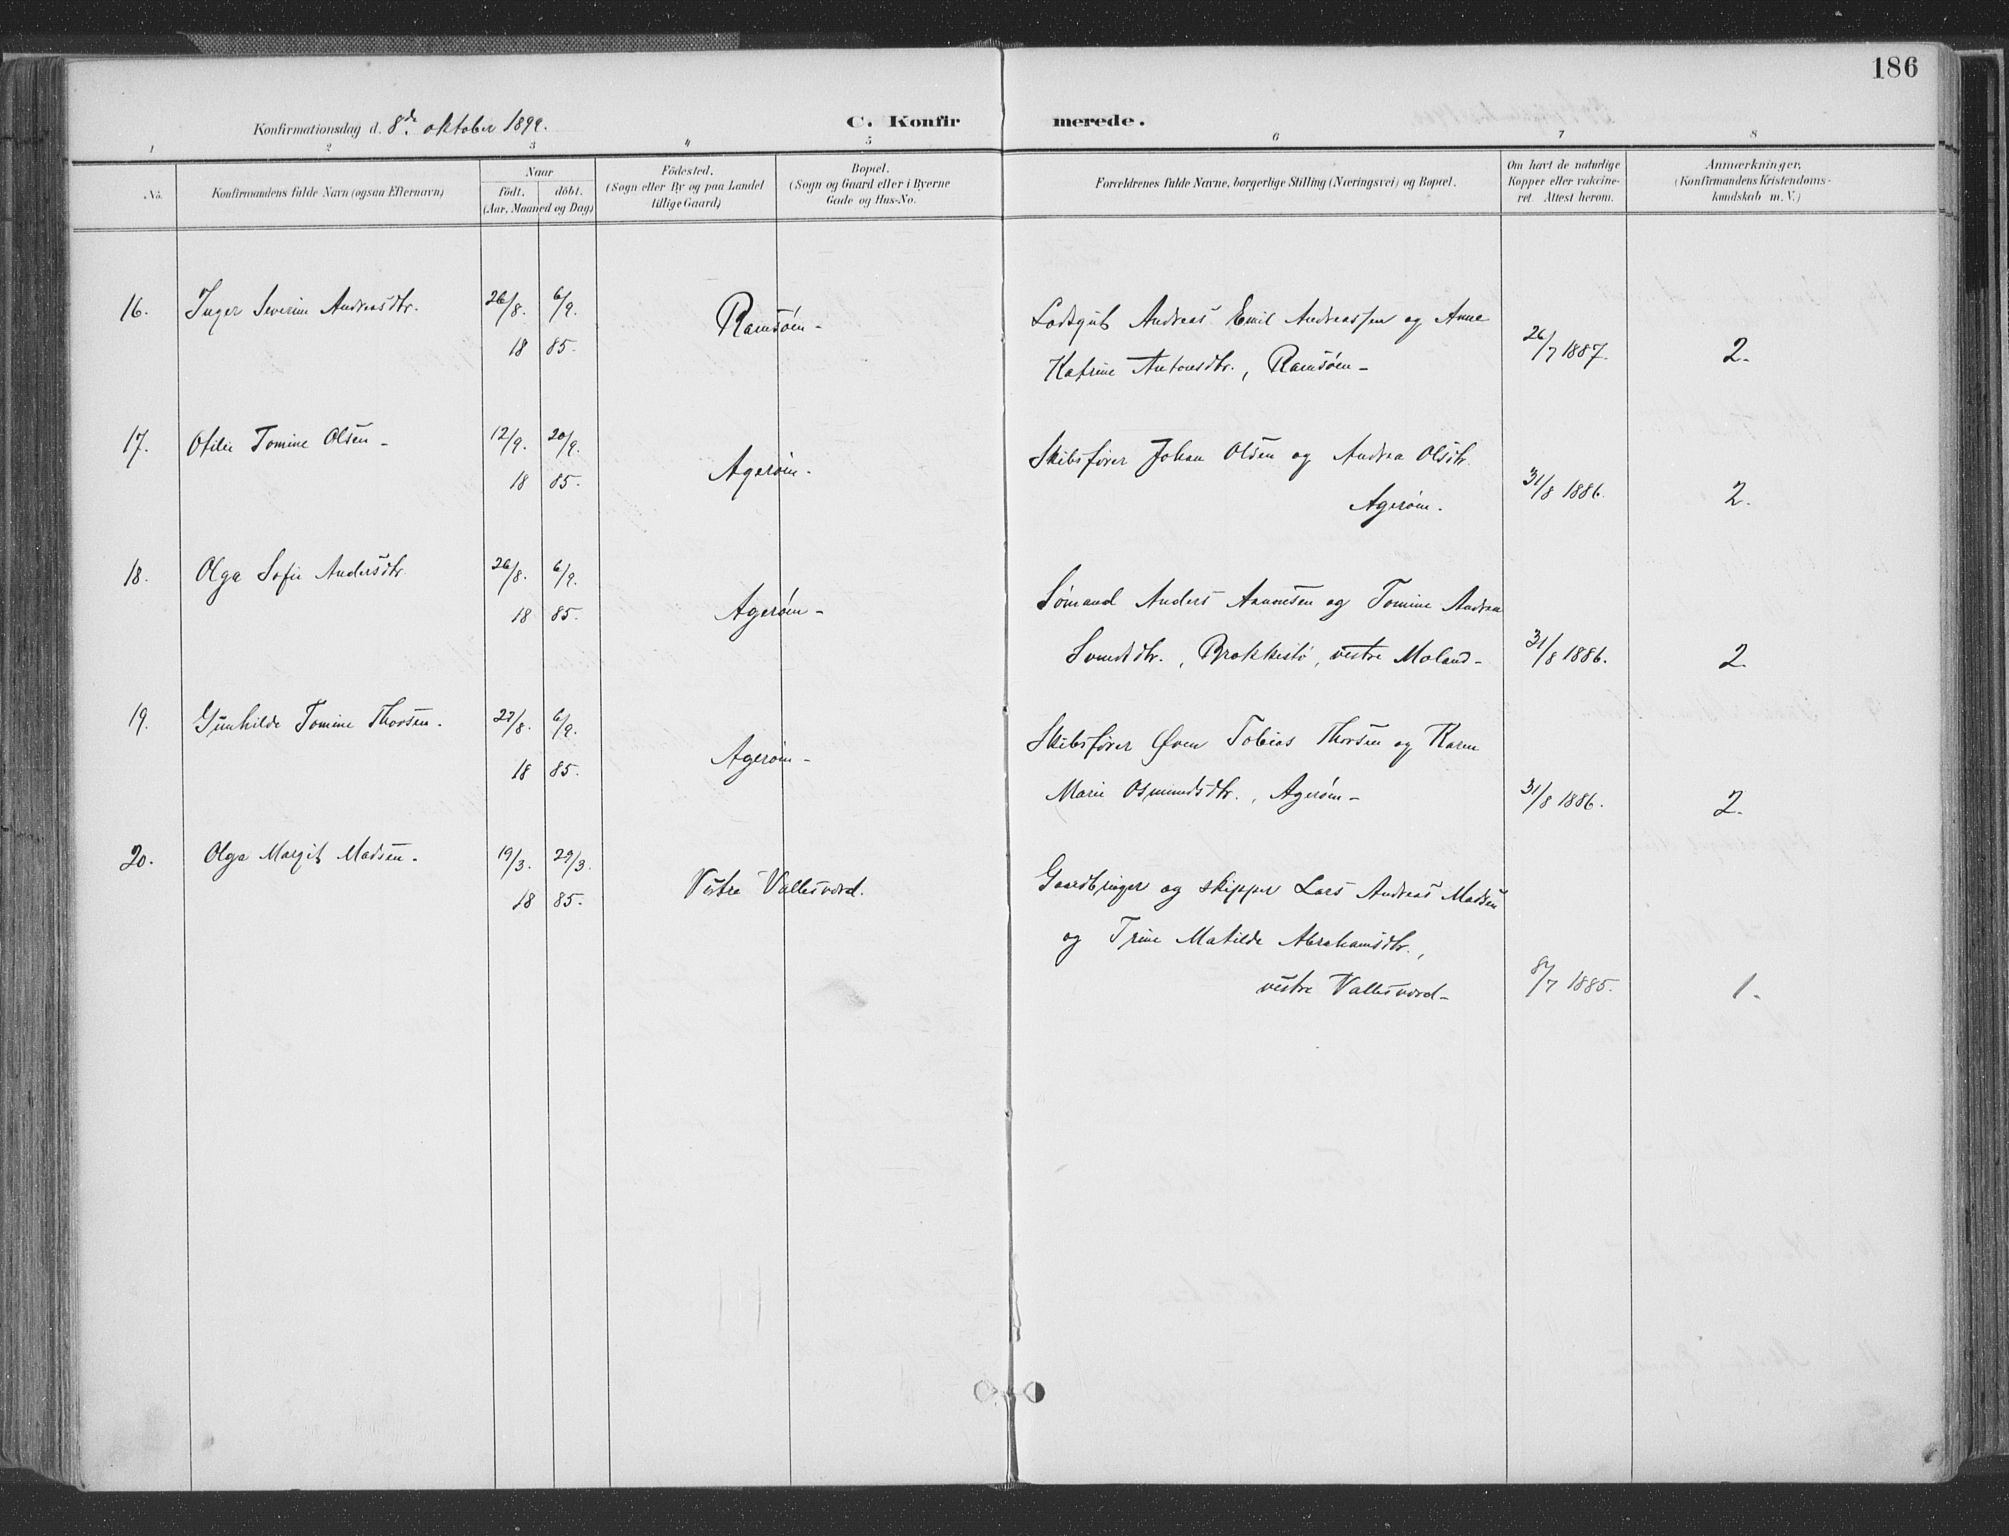 186
Konfirmationsdag d. 8de oktober 1899.
C. Konfirmerede.
1 2 3 4 5 6 7 8
No.
Konfirmandens fulde Navn (ogsaa Efternavn)
Naar
födt. döbt.
(Aar, Maaned og Dag)
Födested.
(Sogn eller By og paa Landet
tillige Gaard)
Bopæl.
(Sogn og Gaard eller i Byerne
Gade og Hus-No.
Forældrenes fulde Navne, borgerlige Stilling (Næringsvei) og Bopæl.
Om havt de naturlige
Kopper eller vakcine-
ret. Attest herom.
Anmærkninger,
(Konfirmandens Kristendoms-
kundskab m. V.)
16. Inger Severine Andreasdtr. 26/8. 6/9.
18 85.
Ramsöen -
Lodsgut Andreas Emil Andreassen og Anne
Katrine Antonsdtr., Ramsöen -
26/7 1887.
2.
17. Otilie Tomine Olsen - 12/9. 20/9.
18 85.
Ageröen.
Skibsfører Johan Olsen og Andrea Olsdtr.
Ageröen.
31/8 1886.
2.
18. Olga Sofie Andersdtr. 26/8. 6/9.
18 85.
Ageröen -
Sømand Anders Aanonsen og Tomine Andrea
Svendsdtr., Brækkestö, vestre Moland -
31/8 1886.
2.
19. Gunhilde Tomine Thorsen. 27/8. 6/9.
18 85.
Ageröen -
Skibsfører Øven Tobias Thorsen og Karen
Marie Osmundsdtr., Ageröen -
31/8 1886.
2.
20. Olga Margit Madsen. 19/3. 29/3.
18 85.
Vestre Vallesværd.
Gaardbruger og skipper Lars Andreas Madsen
og Trine Matilde Abrahamsdtr.,
vestre Vallesværd -
8/7 1885.
1.